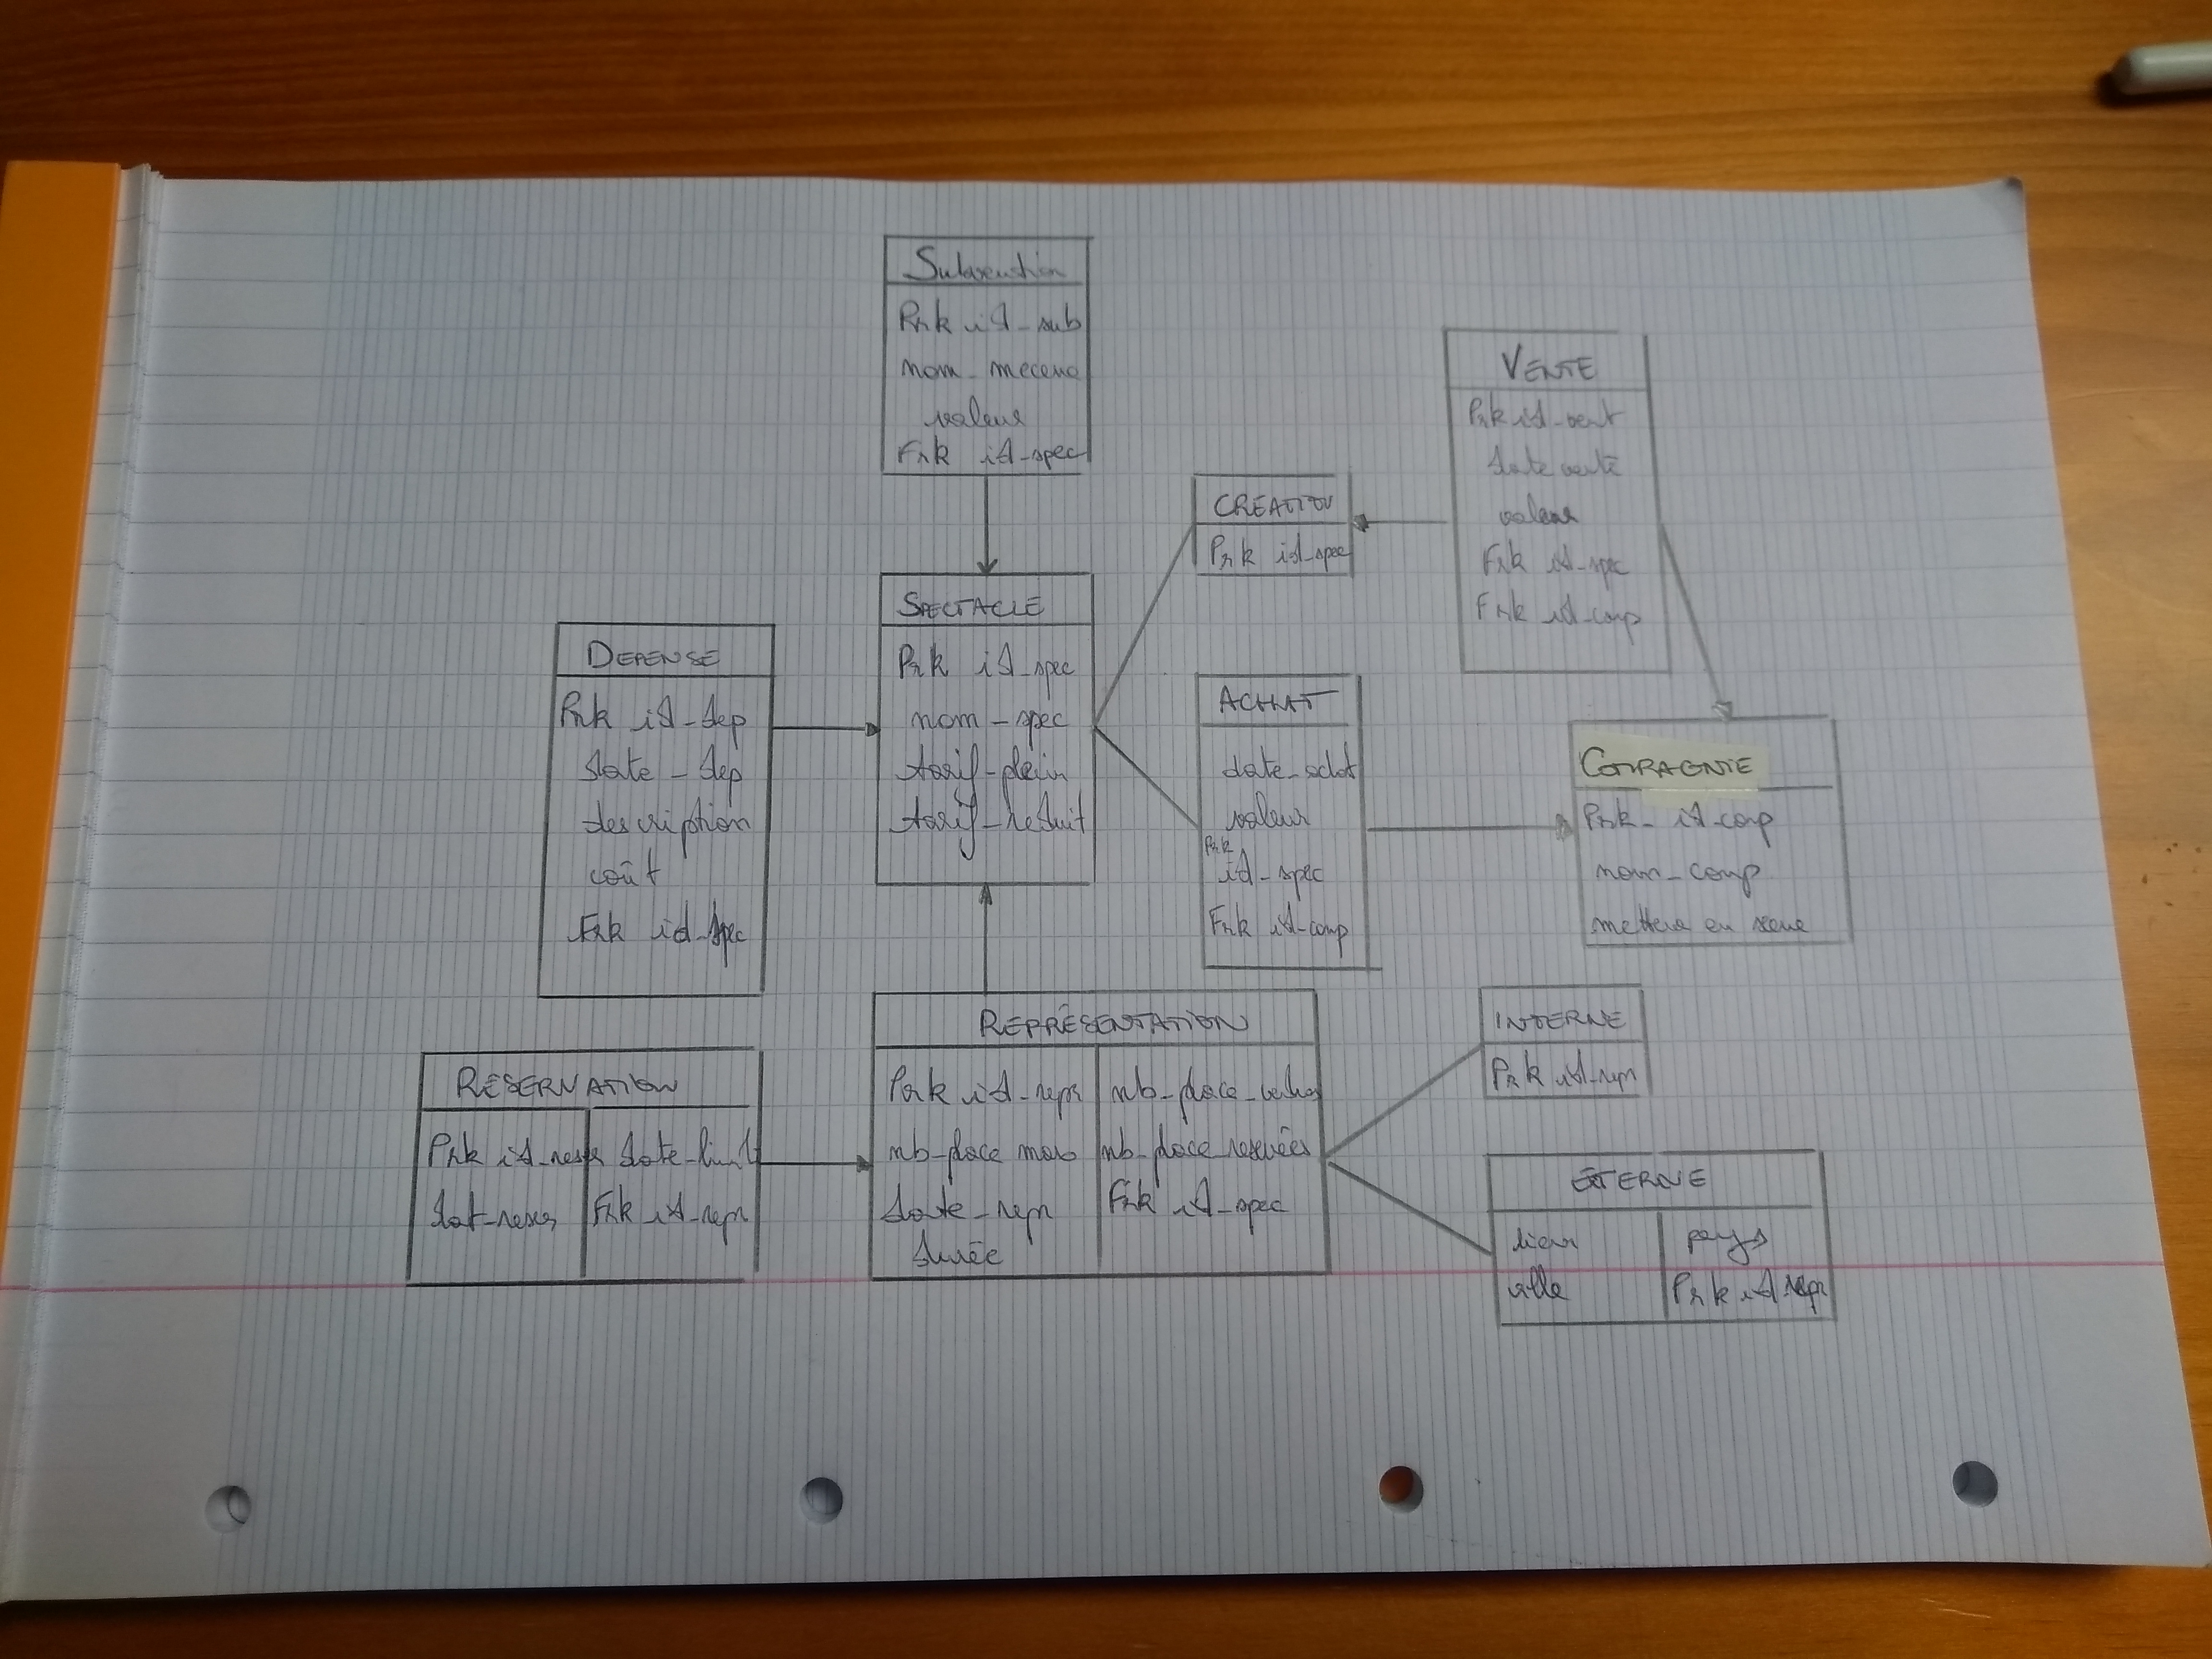 Subvention
Prk id_sub
nom_mecene
valeur
Frk id_spec
VENTE
Prk id_vent
date vente
valeur
Frk id_spec
Frk id_comp
CREATION
Prk id_spec
SPECTACLE
Prk id_spec
nom_spec
tarif_plein
tarif_reduit
DEPENSE
Prk id_dep
date_dep
description
coût
Frk id_spec
ACHAT
date_achat
valeur
Prk
id_spec
Frk id_comp
COMPAGNIE
Prk_id_comp
nom_comp
metteur en scene
REPRÉSENTATION
Prk id_repr nb_place_vendues
nb_place max nb_place_reservées
date_repr Frk id_spec
durée
INTERNE
Prk id_repr
RÉSERVATION
Prk id_reser date_limit
dat_reser Frk id_repr
EXTERNE
lieu pays
ville Prk id_repr